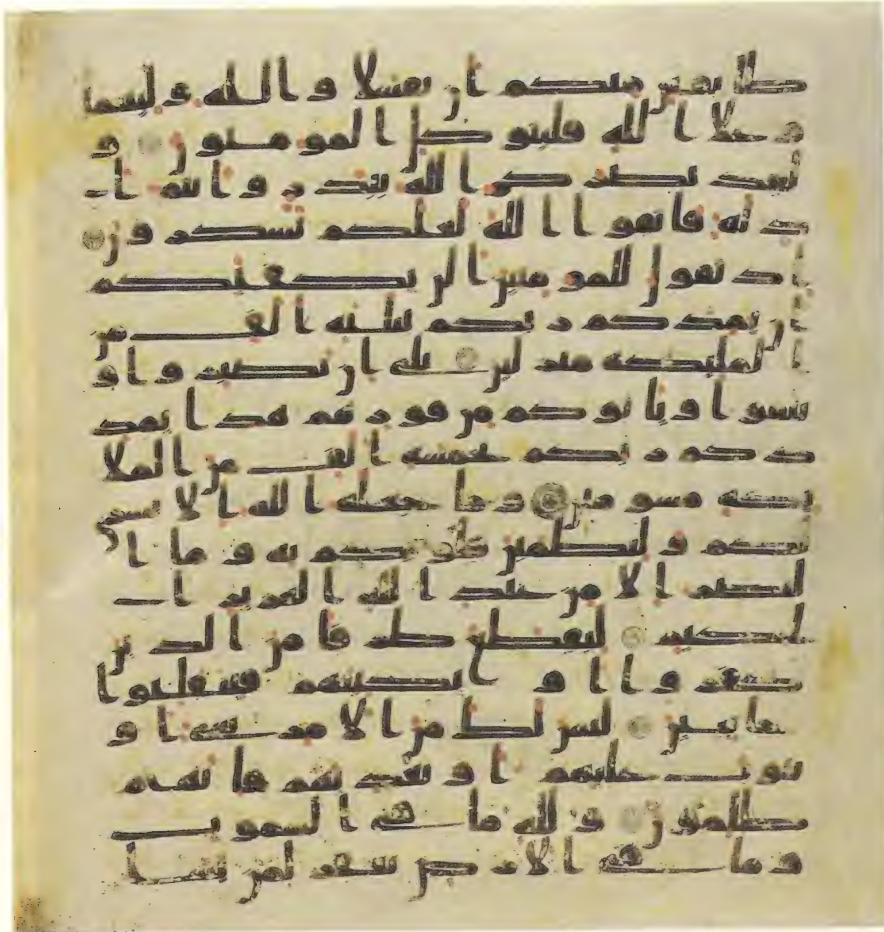 طايفتن منكم ان تفشلا والله وليهما
وعلا الله فليتوكل المومنون و
لقد نصركم الله ببدر وانتم ا
ذلة فاتقوا الله لعلكم تشكرون
اذ تقول للمومنين الن يكفيكم
ان يمدكم ربكم بثلثة الف من
المليكة منزلين بلى ان تصبروا و
تتقوا وياتوكم من فورهم هذا يمد
دكم ربكم بخمسة الف من الملا
يكة مسومين وما جعله الله الا بشرى
لكم ولتطمين قلوبكم به وما ا
لنصر الا من عند الله العزيز ا
لحكيم ليقطع طرفا من الذين
كفروا او يكبتهم فينقلبوا
خايبين ليس لك من الامر شي او
يتوب عليهم او يعذبهم فانهم
ظلمون ولله ما في السموت
وما في الارض يغفر لمن يشا